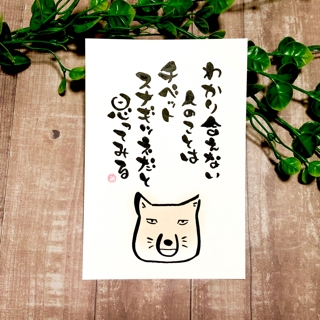 わかり合えない
人のことは
チベット
スナギツネだと
思ってみる